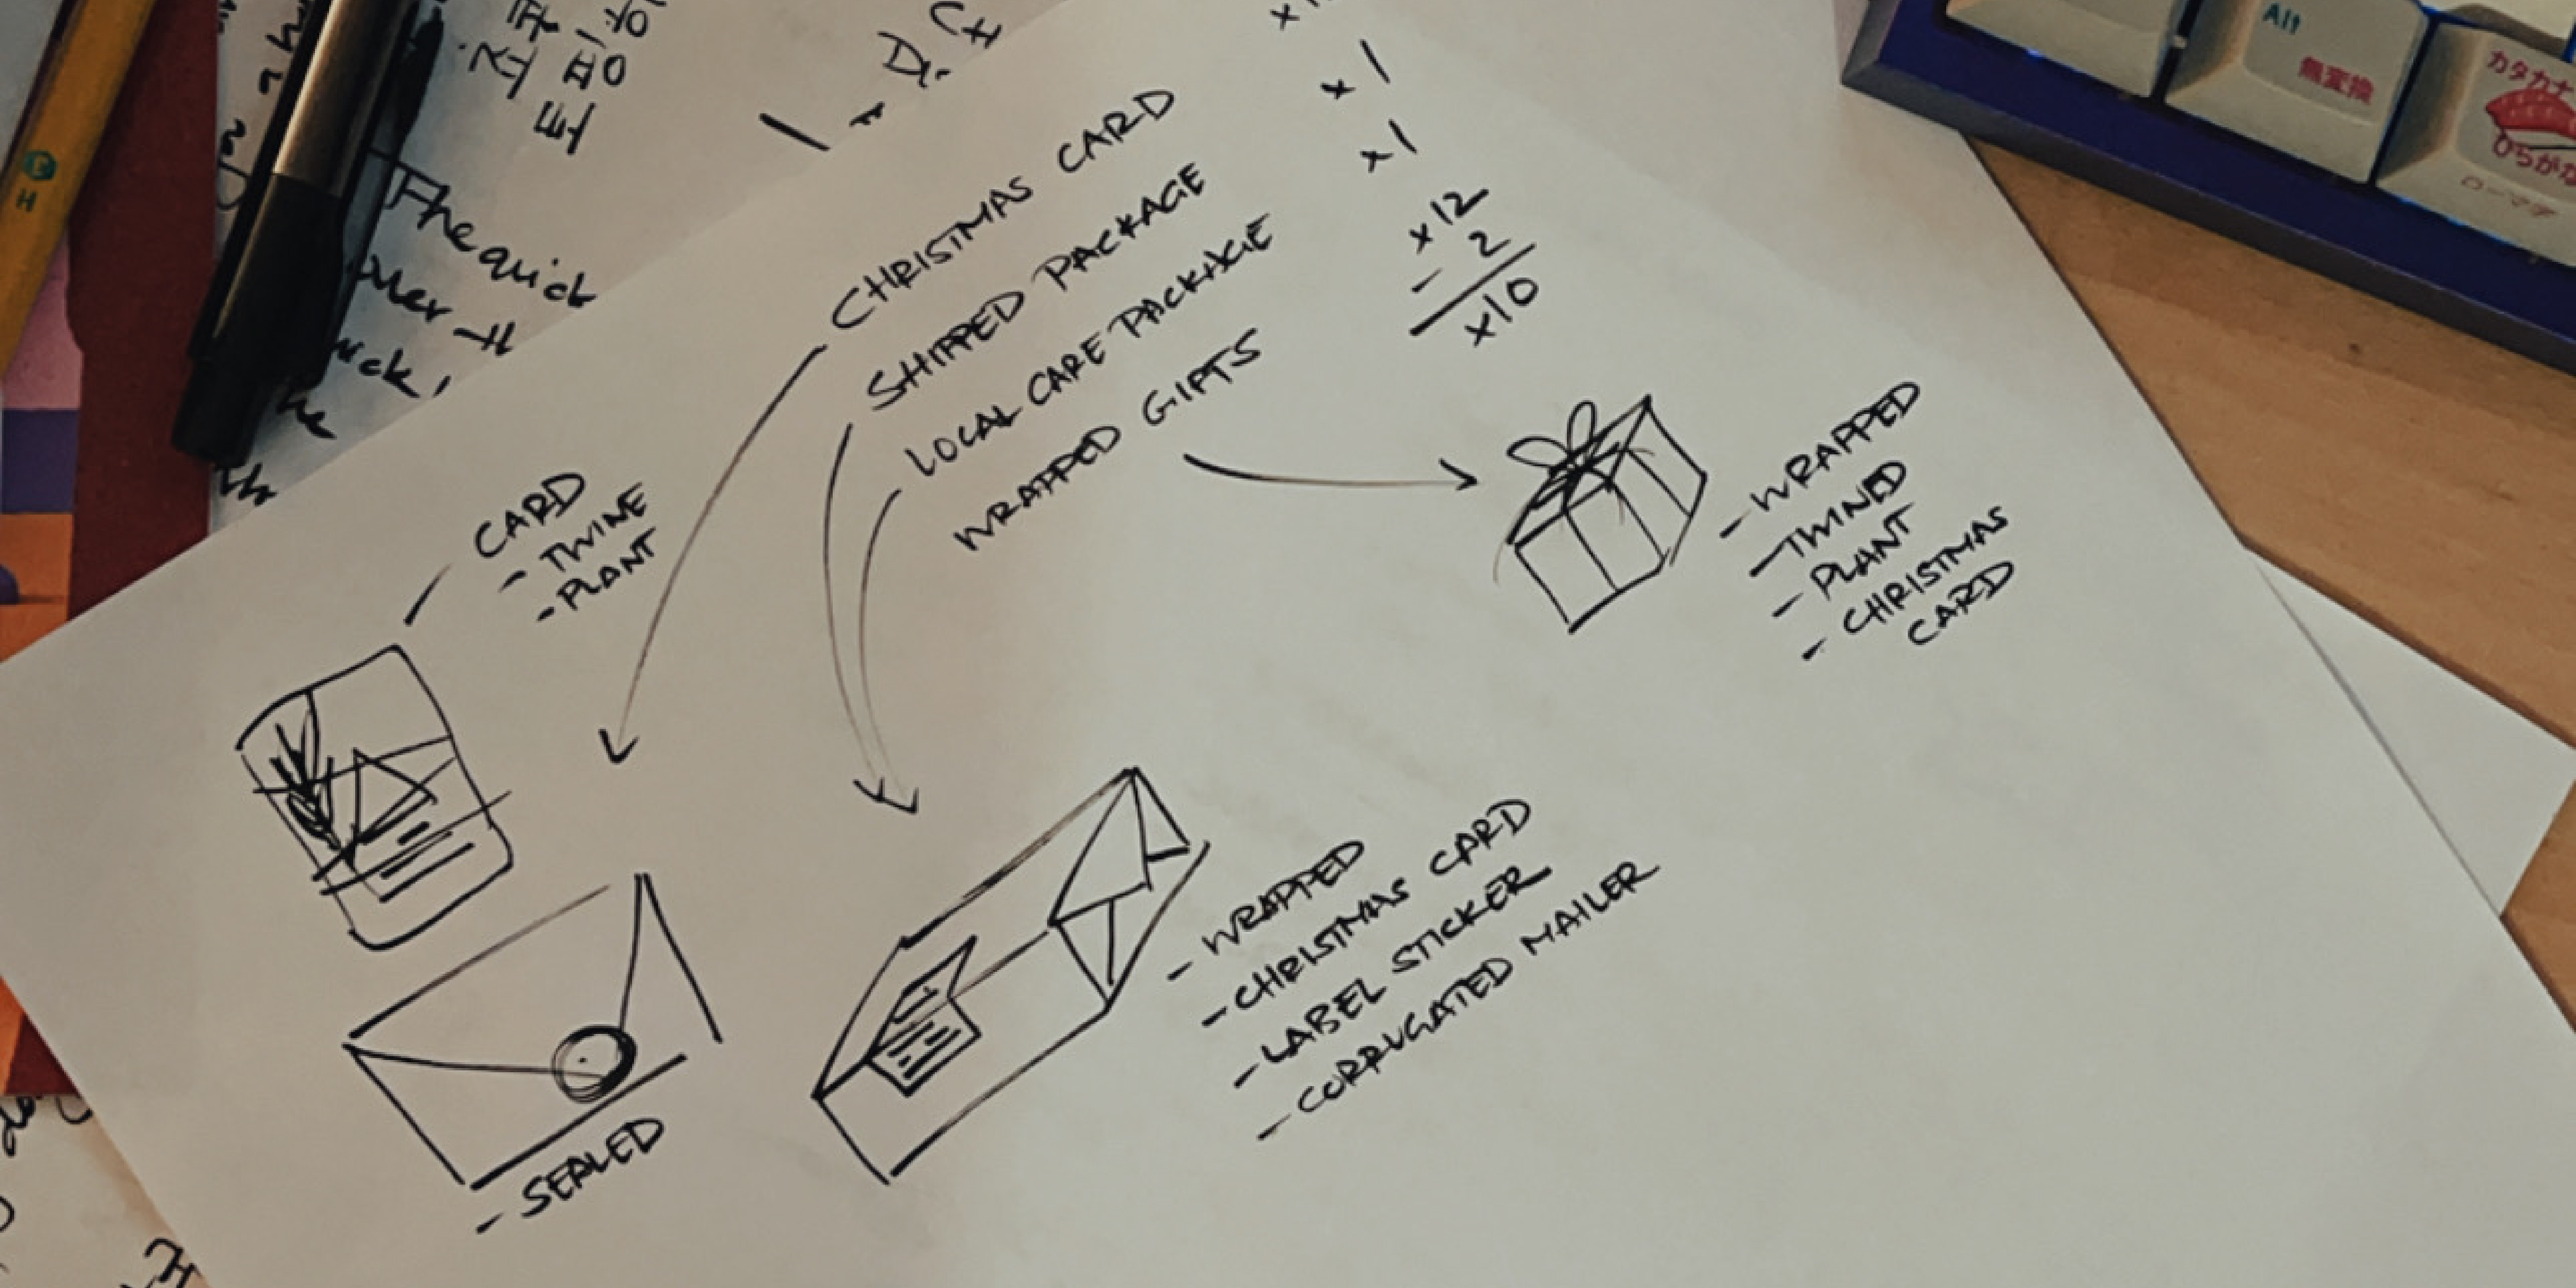 CHRISTMAS CARD
SHIPPED PACKAGE x1
LOCAL CARE PACKAGE x1
WRAPPED GIFTS x12
- 2
x10
CARD
- TWINE
- PLANT
- SEALED
- WRAPPED
- CHRISTMAS CARD
- LABEL STICKER
- CORRUGATED MAILER
- WRAPPED
- TWINED
- PLANT
- CHRISTMAS
CARD
The quick
H
Alt
無変換
カタカナ
ひらがな
ローマ字